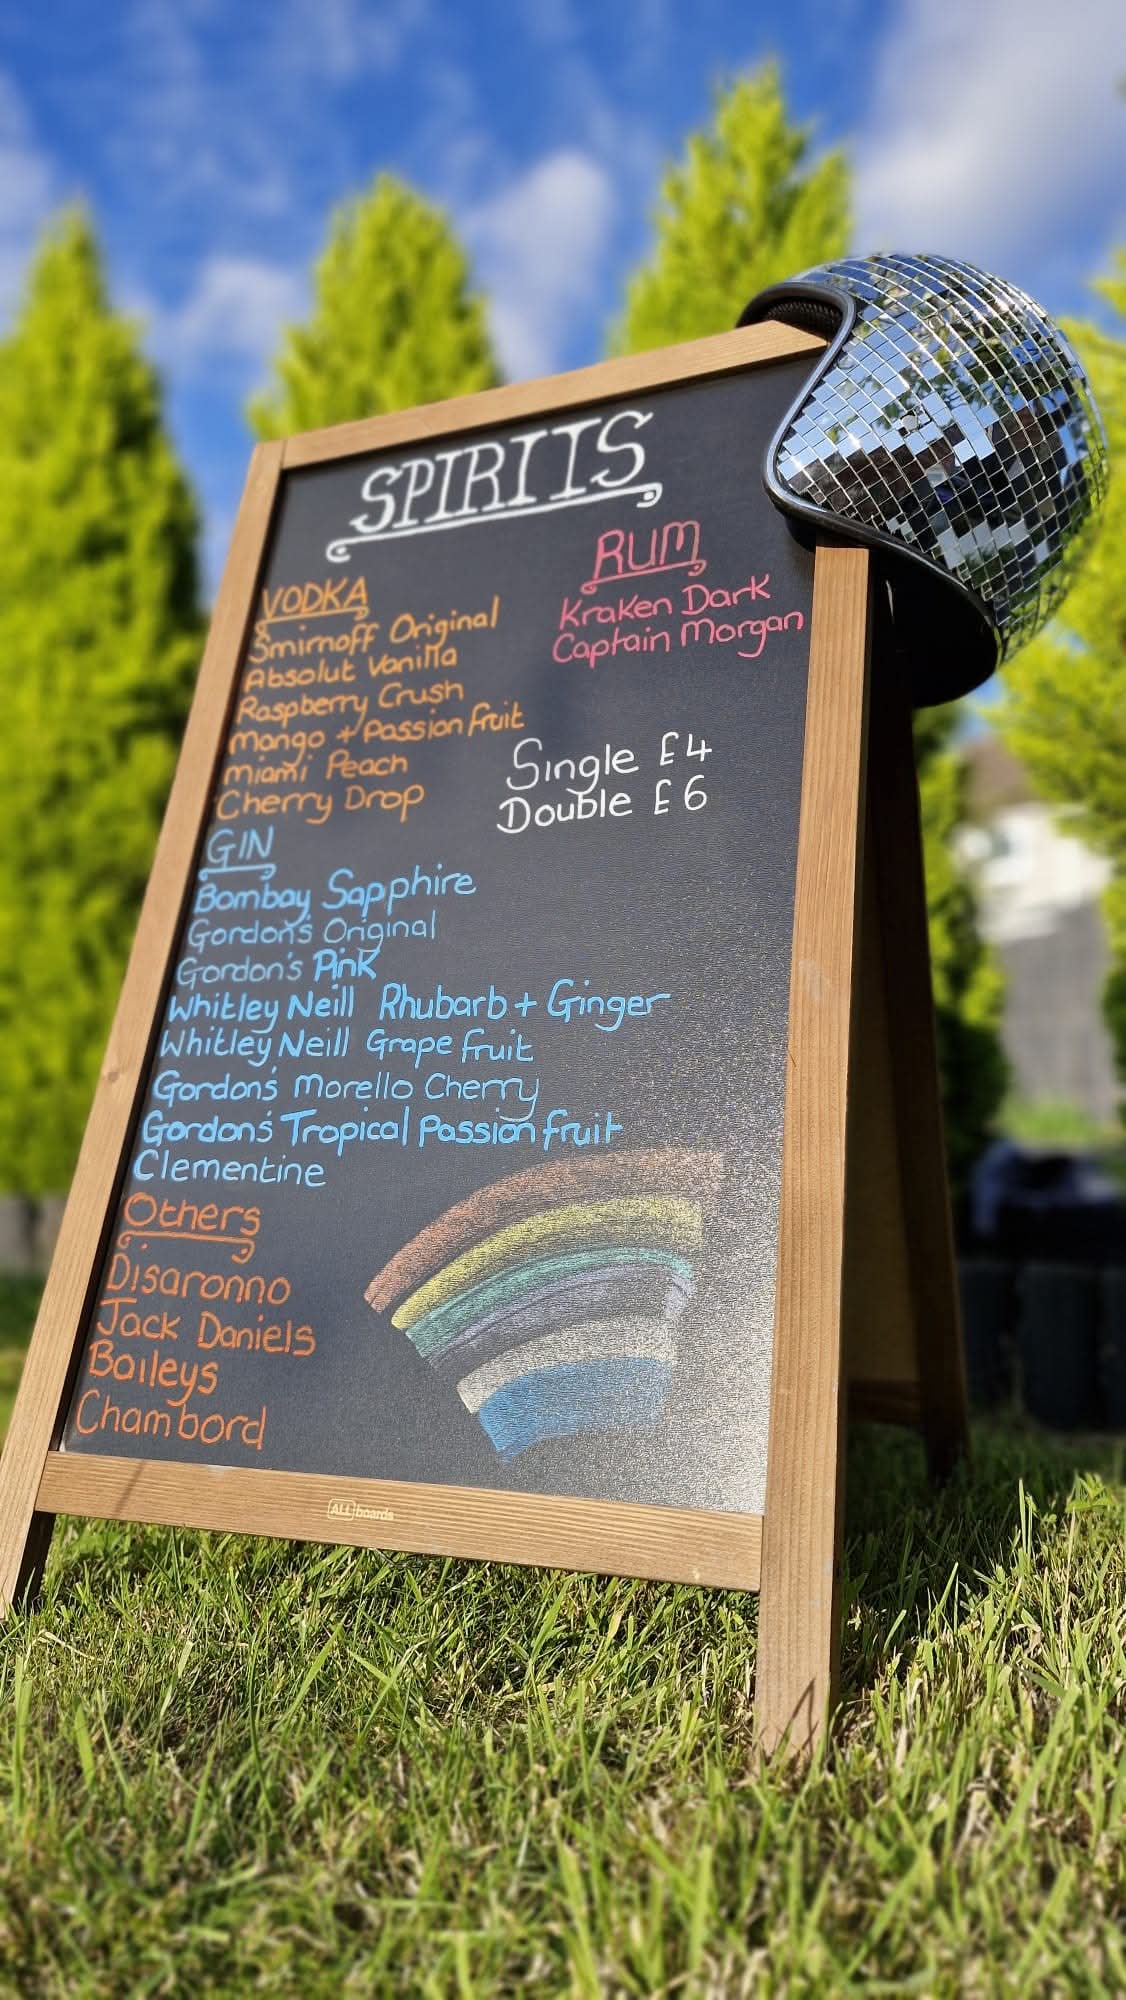 SPIRITS
VODKA
Smirnoff Original
Absolut Vanilla
Raspberry Crush
Mango + Passion fruit
Miami Peach
Cherry Drop
RUM
Kraken Dark
Captain Morgan
Single £4
Double £6
GIN
Bombay Sapphire
Gordon's Original
Gordon's Pink
Whitley Neill Rhubarb + Ginger
Whitley Neill Grape fruit
Gordon's Morello Cherry
Gordon's Tropical Passion fruit
Clementine
Others
Disaronno
Jack Daniels
Baileys
Chambord
ALLboards